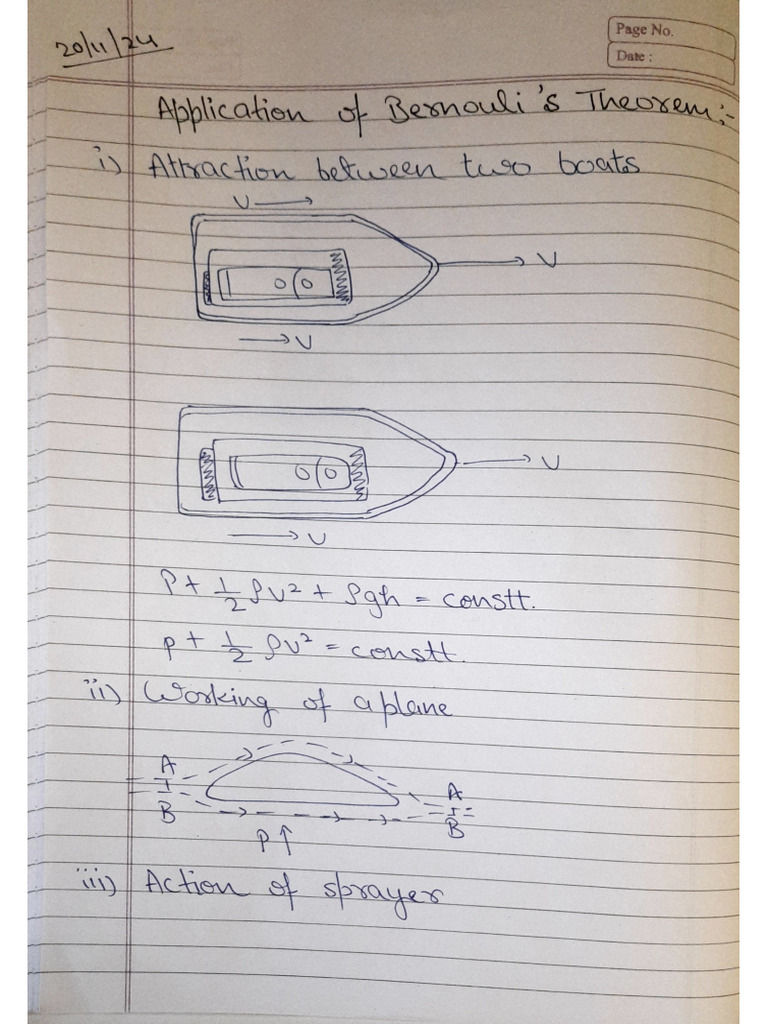 20/11/24
Page No.
Date :
Application of Bernouli's Theorem:-
i) Attraction between two boats
V
V
V
V
V
P + 1/2 ρv² + ρgh = constt.
p + 1/2 ρv² = constt.
ii) Working of aplane
A A
B B
P↑
iii) Action of sprayer